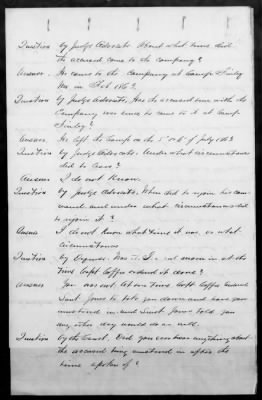 Question by Judge Advocate. About what time did
the accused come to the company?
Answer. He came to the Company at Camp Finley
in Feb 1863.
Question by Judge Advocate. Has the accused been with the
Company ever since he came to it at Camp
Finley?
Answer. He left the Camp on the 5" or 6" of July 1863
Question by Judge Advocate. Under what circumstances
did he leave?
Answer I do not know.
Question by Judge Advocate. When did he rejoin his com-
mand and under what circumstances did
he rejoin it?
Answer I do not know what time it was, or what
circumstances
Question by Was I not sworn in at the
time Capt Coffee ordered it done?
Answer You was not. At one time Capt Coffee ordered
Lieut Jones to take you down and have you
mustered in and Lieut Jones told you
any other day would do as well.
Question by the Court. Did you ever hear anything about
the accused being mustered in after the
time spoken of?